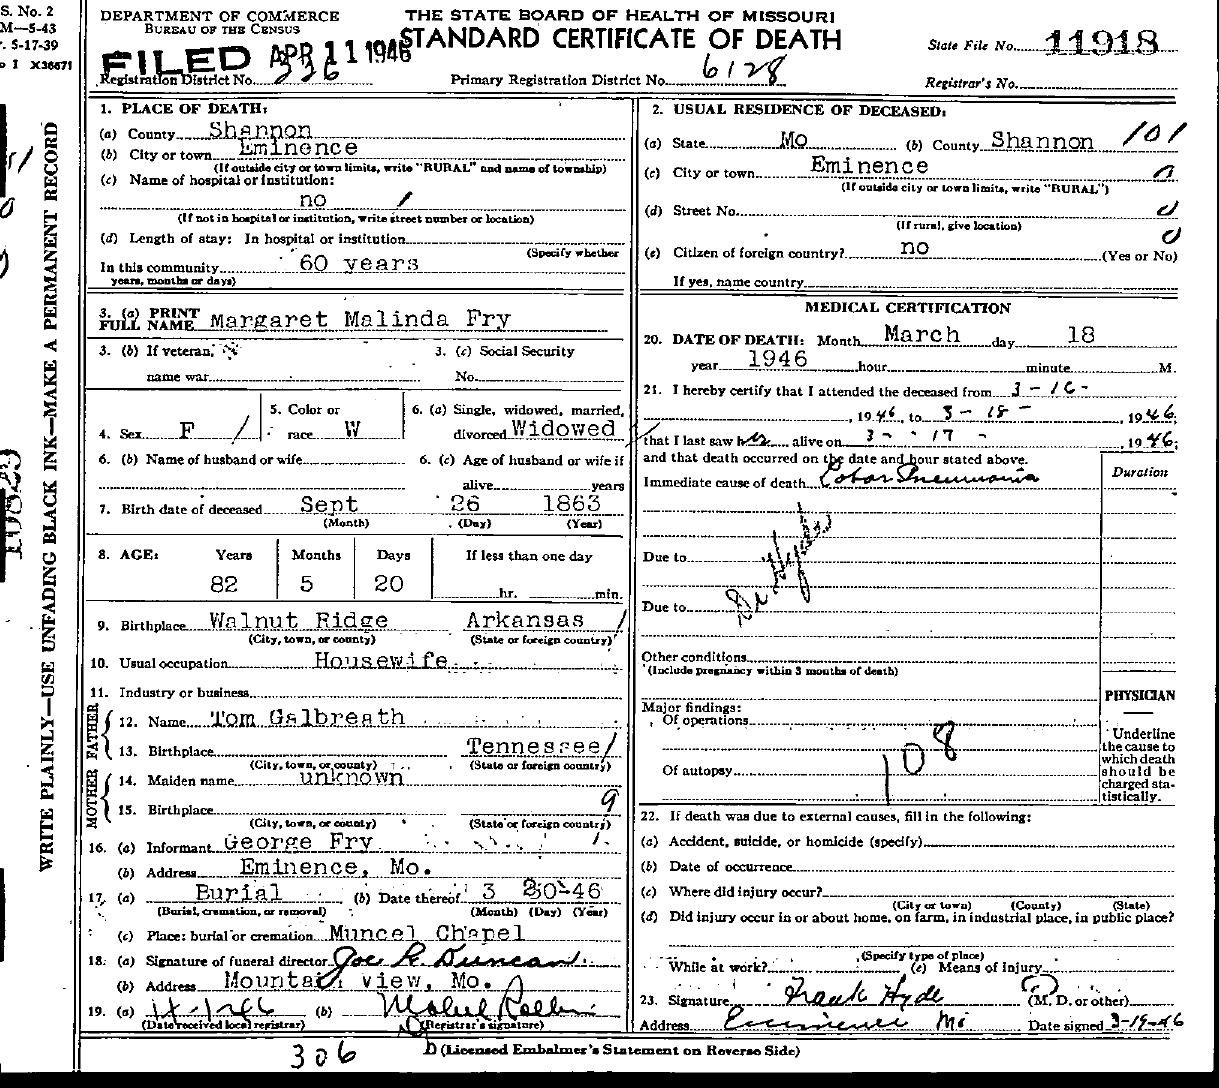 S. No. 2
M—5-43
5-17-39
I X36671
WRITE PLAINLY—USE UNFADING BLACK INK—MAKE A PERMANENT RECORD
DEPARTMENT OF COMMERCE
BUREAU OF THE CENSUS
THE STATE BOARD OF HEALTH OF MISSOURI
STANDARD CERTIFICATE OF DEATH
FILED APR 11 1946
State File No. 11918
Registration District No. 336
Primary Registration District No. 6128
Registrar's No.
1. PLACE OF DEATH:
(a) County Shannon
(b) City or town Eminence
(If outside city or town limits, write "RURAL" and name of township)
(c) Name of hospital or institution:
no /
(If not in hospital or institution, write street number or location)
(d) Length of stay: In hospital or institution
(Specify whether
In this community 60 years
years, months or days)
3. (a) PRINT FULL NAME Margaret Malinda Fry
3. (b) If veteran,
name war
3. (c) Social Security
No.
4. Sex F /
5. Color or
race W
6. (a) Single, widowed, married,
divorced Widowed
6. (b) Name of husband or wife
6. (c) Age of husband or wife if
alive years
7. Birth date of deceased Sept 26 1863
(Month) (Day) (Year)
8. AGE: Years Months Days If less than one day
82 5 20 hr. min.
9. Birthplace Walnut Ridge Arkansas /
(City, town, or county) (State or foreign country)
10. Usual occupation Housewife
11. Industry or business
FATHER
12. Name Tom Galbreath
13. Birthplace Tennessee /
(City, town, or county) (State or foreign country)
MOTHER
14. Maiden name unknown
15. Birthplace 9
(City, town, or county) (State or foreign country)
16. (a) Informant George Fry
(b) Address Eminence, Mo.
17. (a) Burial (b) Date thereof 3 20-46
(Burial, cremation, or removal) (Month) (Day) (Year)
(c) Place: burial or cremation Muncel Chapel
18. (a) Signature of funeral director Joe R. Duncan
(b) Address Mountain view, Mo.
19. (a) (b) Mabel
(Date received local registrar) (Registrar's signature)
2. USUAL RESIDENCE OF DECEASED:
(a) State Mo (b) County Shannon 101
(c) City or town Eminence
(If outside city or town limits, write "RURAL")
(d) Street No.
(If rural, give location)
(e) Citizen of foreign country? no (Yes or No)
If yes, name country
MEDICAL CERTIFICATION
20. DATE OF DEATH: Month March day 18
year 1946 hour minute M.
21. I hereby certify that I attended the deceased from 3-16-
, 1946, to 3-18-, 1946;
that I last saw her alive on 3-17-, 1946;
and that death occurred on the date and hour stated above.
Duration
Immediate cause of death Lobar Pneumonia
Due to
Dr Hyde
Due to
Other conditions
(Include pregnancy within 3 months of death)
PHYSICIAN
Major findings:
Of operations
Of autopsy
108
Underline
the cause to
which death
should be
charged sta-
tistically.
22. If death was due to external causes, fill in the following:
(a) Accident, suicide, or homicide (specify)
(b) Date of occurrence
(c) Where did injury occur?
(City or town) (County) (State)
(d) Did injury occur in or about home, on farm, in industrial place, in public place?
(Specify type of place)
While at work? (e) Means of injury
23. Signature Frank Hyde (M. D. or other)
Address Eminence Mo Date signed 3-19-46
306
(Licensed Embalmer's Statement on Reverse Side)